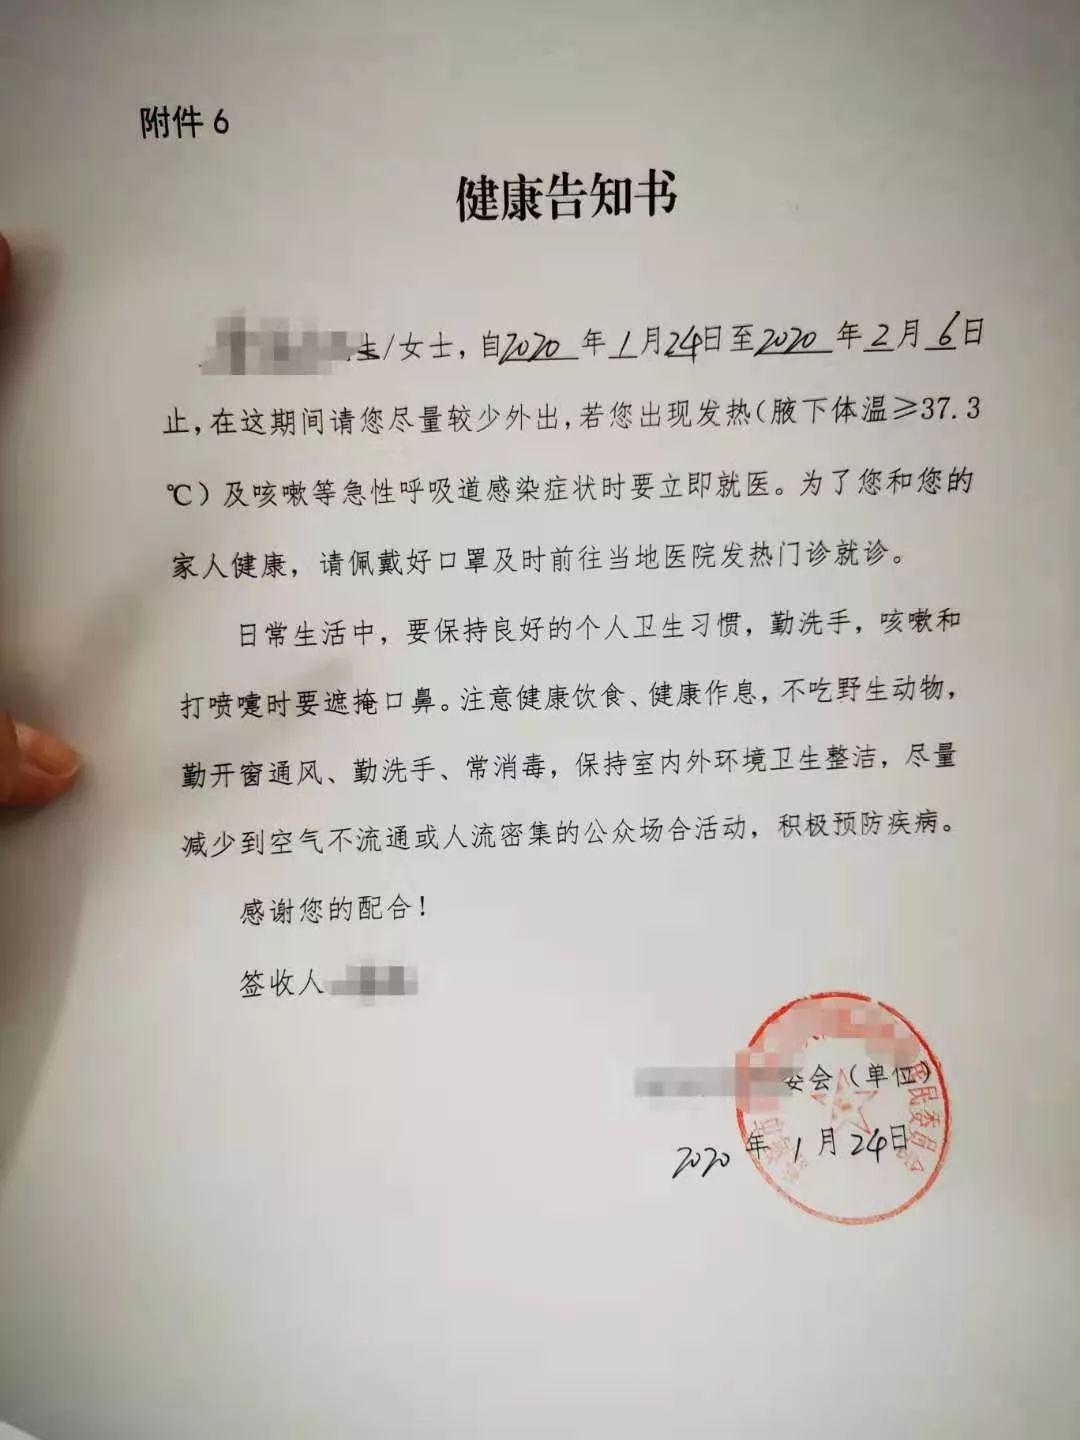 附件6
健康告知书
生/女士，自2020年1月24日至2020年2月6日
止，在这期间请您尽量较少外出，若您出现发热（腋下体温≥37.3
℃）及咳嗽等急性呼吸道感染症状时要立即就医。为了您和您的
家人健康，请佩戴好口罩及时前往当地医院发热门诊就诊。
日常生活中，要保持良好的个人卫生习惯，勤洗手，咳嗽和
打喷嚏时要遮掩口鼻。注意健康饮食、健康作息，不吃野生动物，
勤开窗通风、勤洗手、常消毒，保持室内外环境卫生整洁，尽量
减少到空气不流通或人流密集的公众场合活动，积极预防疾病。
感谢您的配合！
签收人
委会（单位）
居民委员会
2020年1月24日